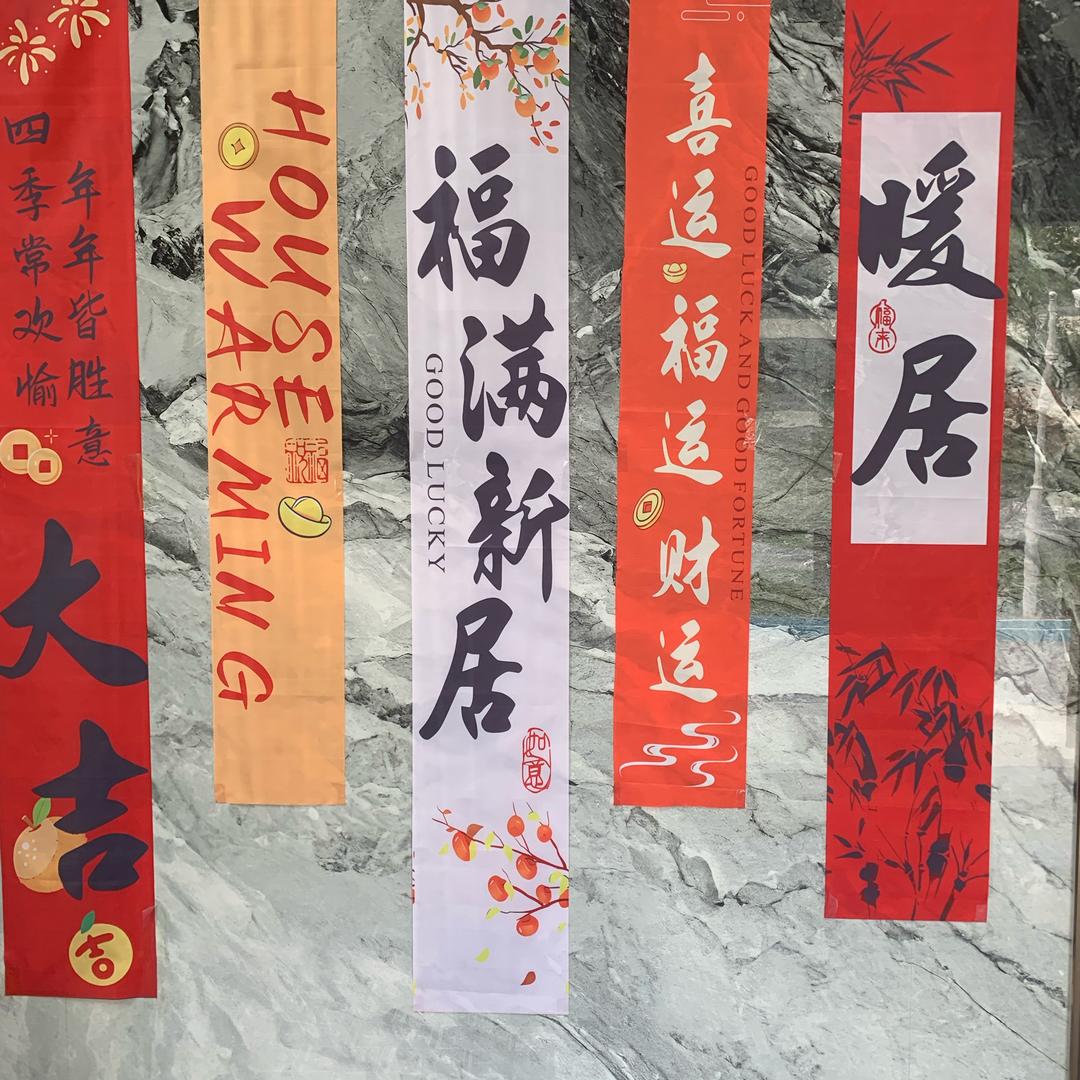 年年皆胜意
四季常欢愉
大吉
吉
HOUSE
WARMING
福满新居
GOOD LUCKY
如意
喜运福运财运
GOOD LUCK AND GOOD FORTUNE
暖居
福来